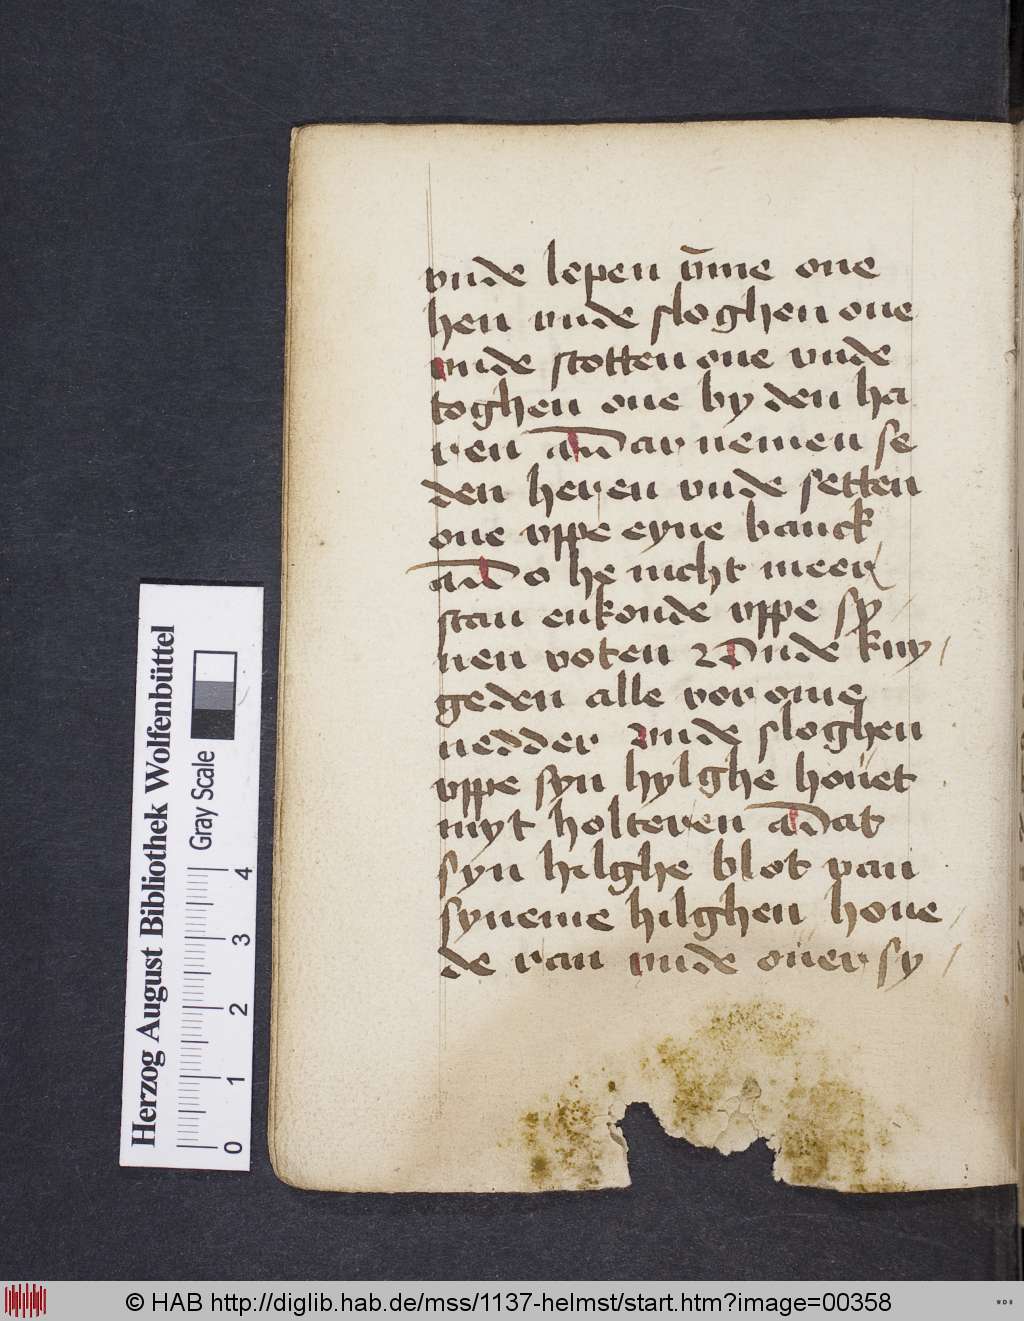 vnde lepen v̄me one
hen vnde sloghen one
vnde stotten one vnde
toghen one by den ha
ren Dar nemen se
den heren vnde setten
one vppe eyne banck
Do he nicht meer
stan enkonde vppe sy/
nen voten Unde kny/
geden alle vor ome
nedder vnde sloghen
vppe syn hylghe houet
myt holteren Dat
syn hilghe blot van
syneme hilghen houe/
de ran vnde ouer sy/
Herzog August Bibliothek Wolfenbüttel
Gray Scale
0 1 2 3 4
© HAB http://diglib.hab.de/mss/1137-helmst/start.htm?image=00358